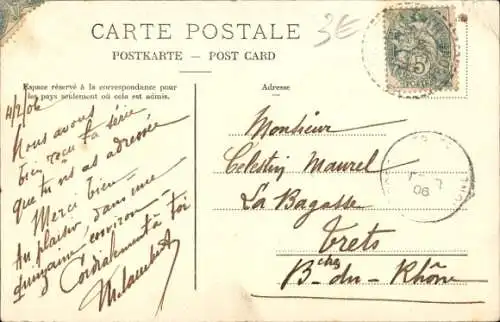 CARTE POSTALE
3€
POSTKARTE — POST CARD
Espace réservé à la correspondance pour
les pays seulement où cela est admis.
Adresse
4/2/06
Nous avons
bien reçu ta série
que tu ns as adressée
Merci bien—
Au plaisir, dans une
quinzaine, environ—
Cordialement à toi
Monsieur
Célestin Maurel
La Bagasse
Trets
Bches-du-Rhône
5
06